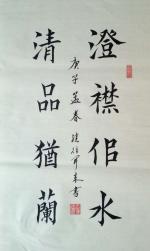 澄襟佀水
清品猶蘭
庚子孟春
書